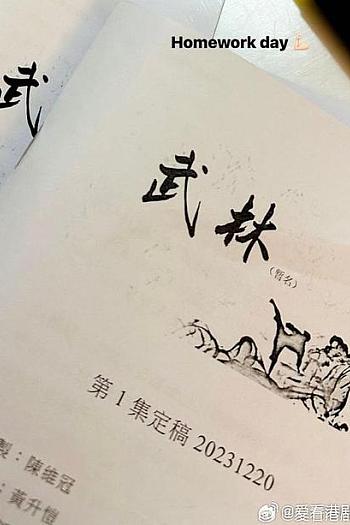 Homework day 💪🏻
武
武林
(暫名)
第1集定稿 20231220
製：陳維冠
：黃升愷
@爱看港剧